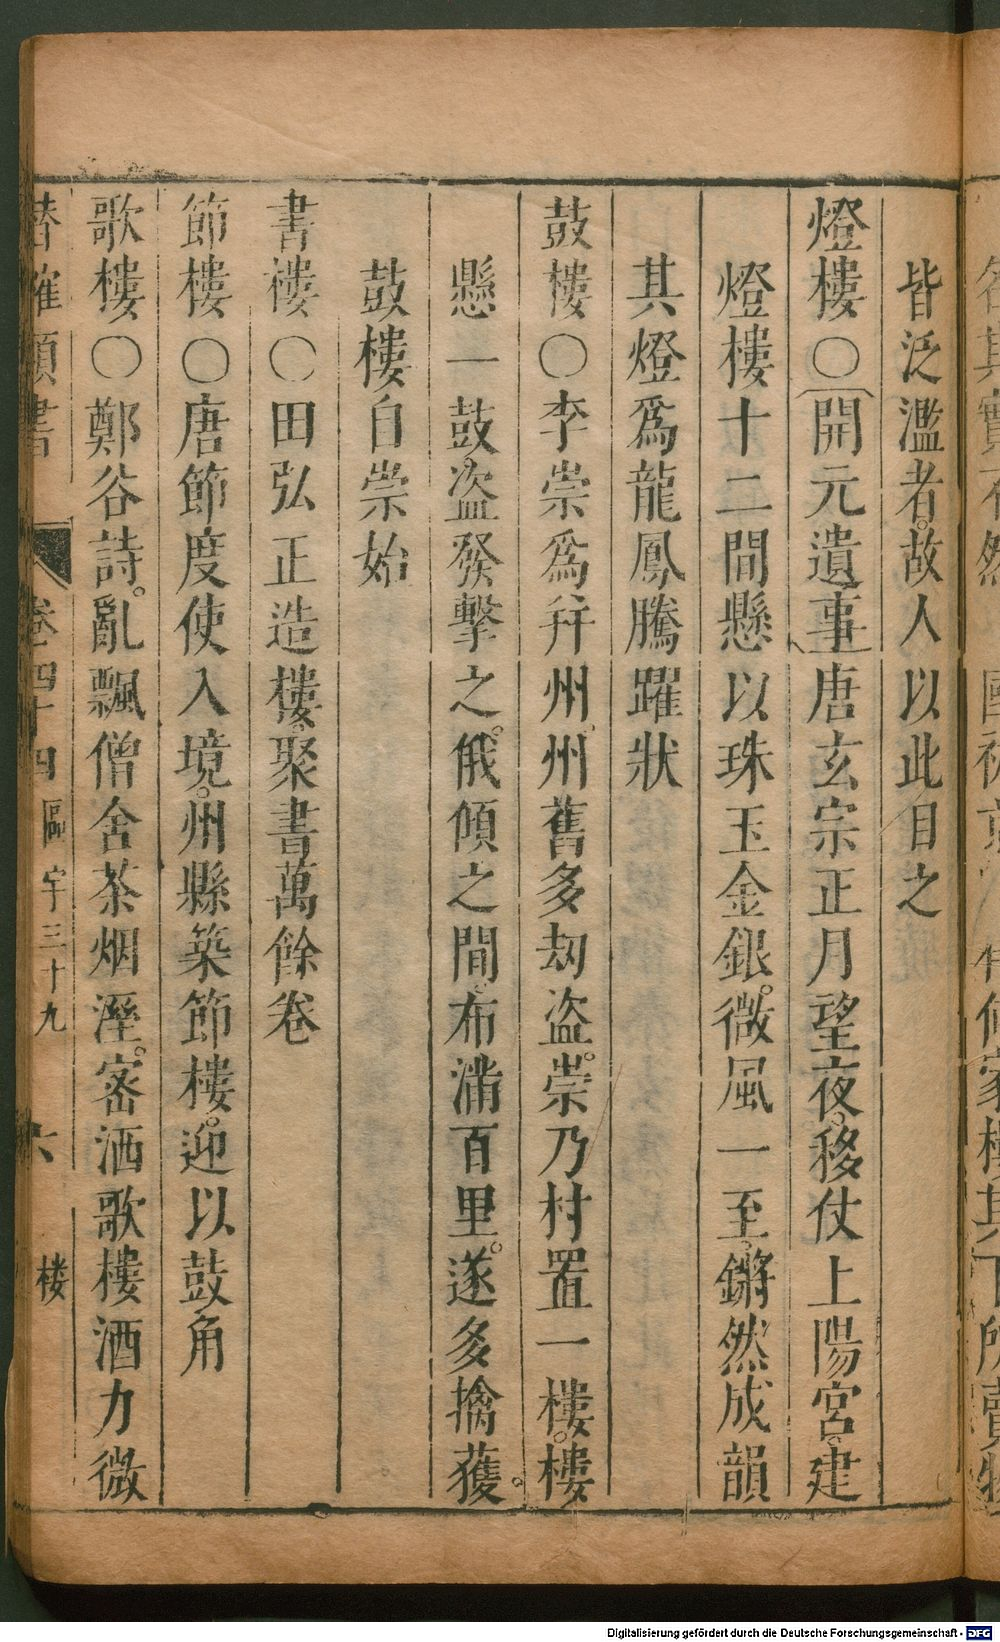 皆泛濫者。故人以此目之
燈樓○開元遺事唐玄宗正月望夜。移仗上陽宮。建
燈樓十二間懸以珠玉金銀。微風一至。鏘然成韻
其燈爲龍鳳騰躍狀
鼓樓○李崇爲幷州。州舊多劫盗。崇乃村置一樓。樓
懸一鼓。盗發擊之。俄傾之間。布滿百里。遂多擒獲。
鼓樓自崇始
書樓○田弘正造樓。聚書萬餘卷
節樓○唐節度使入境。州縣築節樓。迎以鼓角
歌樓○鄭谷詩。亂飄僧舍茶烟溼。密洒歌樓酒力微
卷四十四 區宇三十九 六 楼
Digitalisierung gefördert durch die Deutsche Forschungsgemeinschaft - DFG